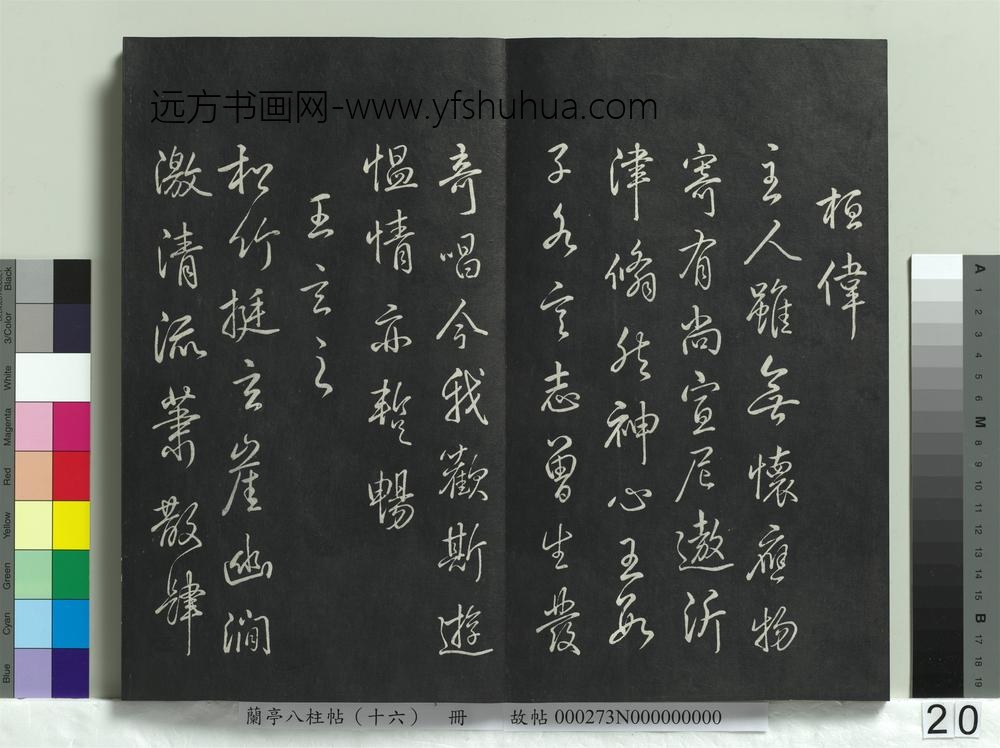 远方书画网-www.yfshuhua.com
桓偉
主人雖無懷應物
寄有尚宣尼遨沂
津翛然神心王數
子各言志曾生發
奇唱今我歡斯遊
愠情亦蹔暢
王玄之
松竹挺玄崖幽澗
激清流蕭散肆
蘭亭八柱帖（十六） 冊 故帖 000273N000000000
20
Black
3/Color
White
Magenta
Red
Yellow
Green
Cyan
Blue
A 1 2 3 4 5 6 M 8 9 10 11 12 13 14 15 B 17 18 19